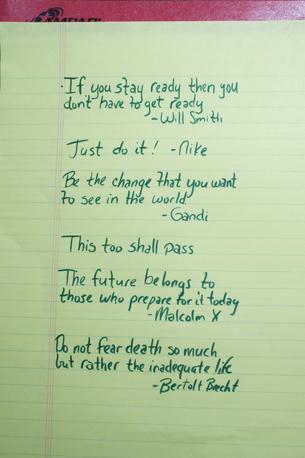 AMPAD
· If you stay ready then you
don't have to get ready
- Will Smith
Just do it! - Nike
Be the change that you want
to see in the world
- Gandi
This too shall pass
The future belongs to
those who prepare for it today
- Malcolm X
Do not fear death so much
but rather the inadequate life
- Bertolt Brecht